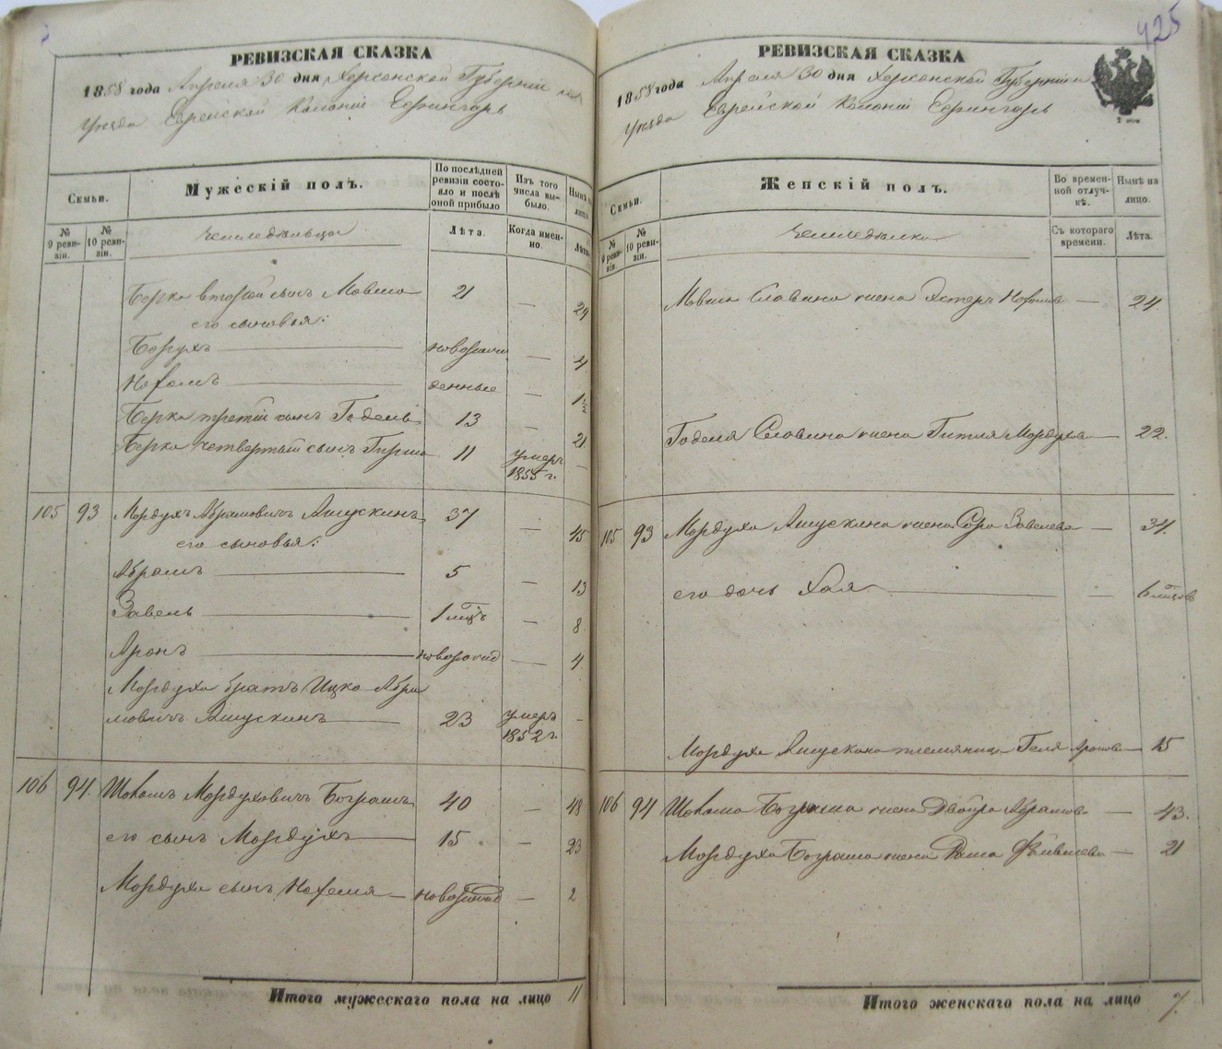 РЕВИЗСКАЯ СКАЗКА
1858 года Апреля 30 дня Херсонской Губерніи
Уезда Еврейской Колоніи Ефингаръ
Семьи.
Мужескій полъ.
По последней ревизіи состояло и после оной прибыло
Изъ того числа выбыло.
Ныне на лицо.
№ 9 ревизіи.
№ 10 ревизіи.
Земледельцы
Лѣта.
Когда именно.
Лѣта.
Берка второй сынъ Мовша 21 — 29
его сыновья:
Борухъ новорож — 4
Нохемъ денные — 1½
Берка третій сынъ Годель 13 — 21
Берка четвертый сынъ Гирша 11 умеръ 1855 г. —
105 93 Мордухъ Абрамовичъ Ашускинъ 37 — 45
его сыновья:
Абрамъ 5 — 13
Завель 1 мцъ — 8
Аронъ новорожд — 4
Мордуха братъ Ицко Абра
мовичъ Ашускинъ 23 умеръ 1852 г. —
106 94. Шоломъ Мордуховичъ Бограмъ 40 — 48
его сынъ Мордухъ 15 — 23
Мордуха сынъ Нохемя новорожд — 2
Итого мужескаго пола на лицо 11
425
РЕВИЗСКАЯ СКАЗКА
1858 года Апреля 30 дня Херсонской Губерніи
Уезда Еврейской Колоніи Ефингаръ
Семьи.
Женскій полъ.
Во временной отлучкѣ.
Нынѣ на лицо.
№ 9 ревизіи.
№ 10 ревизіи.
Земледелки
Съ котораго времени.
Лѣта.
Мовши Словина жена Эстеръ — 24
Годеля Словина жена Гитля Мордухова — 22.
105 93 Мордуха Ашускина жена Сора Завелева — 34.
его дочь Хая — 6 мцовъ
Мордуха Ашускина племянница Геля Аронова — 15
106 94 Шолома Бограма жена Двойра Абрамов — 43.
Мордуха Бограма жена Файвишева — 21
Итого женскаго пола на лицо 7.